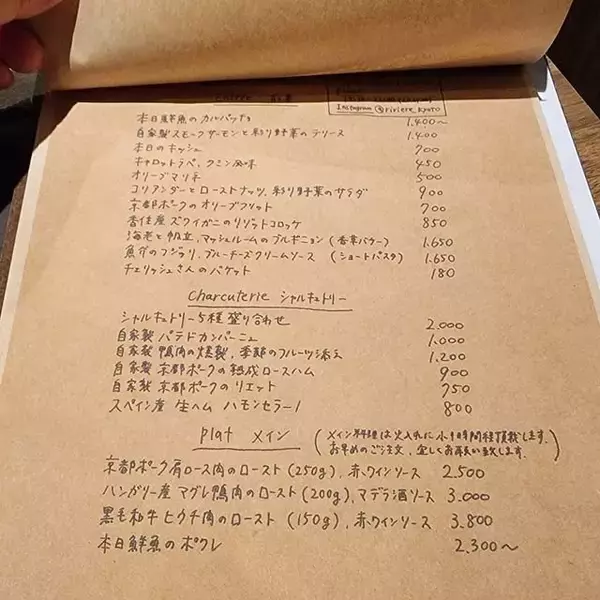 Instagram @riviere_kyoto
本日鮮魚のカルパッチョ 1.400〜
自家製スモークサーモンと彩り野菜のテリース 1.400
本日のキッシュ 700
キャロットラペ、クミン風味 450
オリーブマリネ 500
コリアンダーとローストナッツ、彩り野菜のサラダ 900
京都ポークのオリーブフリット 700
香住産ズワイガニのリゾットコロッケ 850
海老と帆立、マッシュルームのブルギニョン (香草バター) 1.650
フジッリ、ブルーチーズクリームソース (ショートパスタ) 1.650
チェリッシュさんのバゲット 180
Charcuterie シャルキュトリー
シャルキュトリー5種盛り合わせ 2.000
自家製 パテドカンパーニュ 1.000
自家製 鴨肉の燻製、季節のフルーツ添え 1.200
自家製 京都ポークの熟成ロースハム 900
自家製 京都ポークのリエット 750
スペイン産 生ハム ハモンセラーノ 800
Plat メイン
(メイン料理は火入れに小1時間程頂戴します。
お早めのご注文、宜しくお願い致します。)
京都ポーク肩ロース肉のロースト (250g)、赤ワインソース 2.500
ハンガリー産 マグレ鴨肉のロースト (200g)、マデラ酒ソース 3.000
黒毛和牛ヒウチ肉のロースト (150g)、赤ワインソース 3.800
本日鮮魚のポワレ 2.300〜